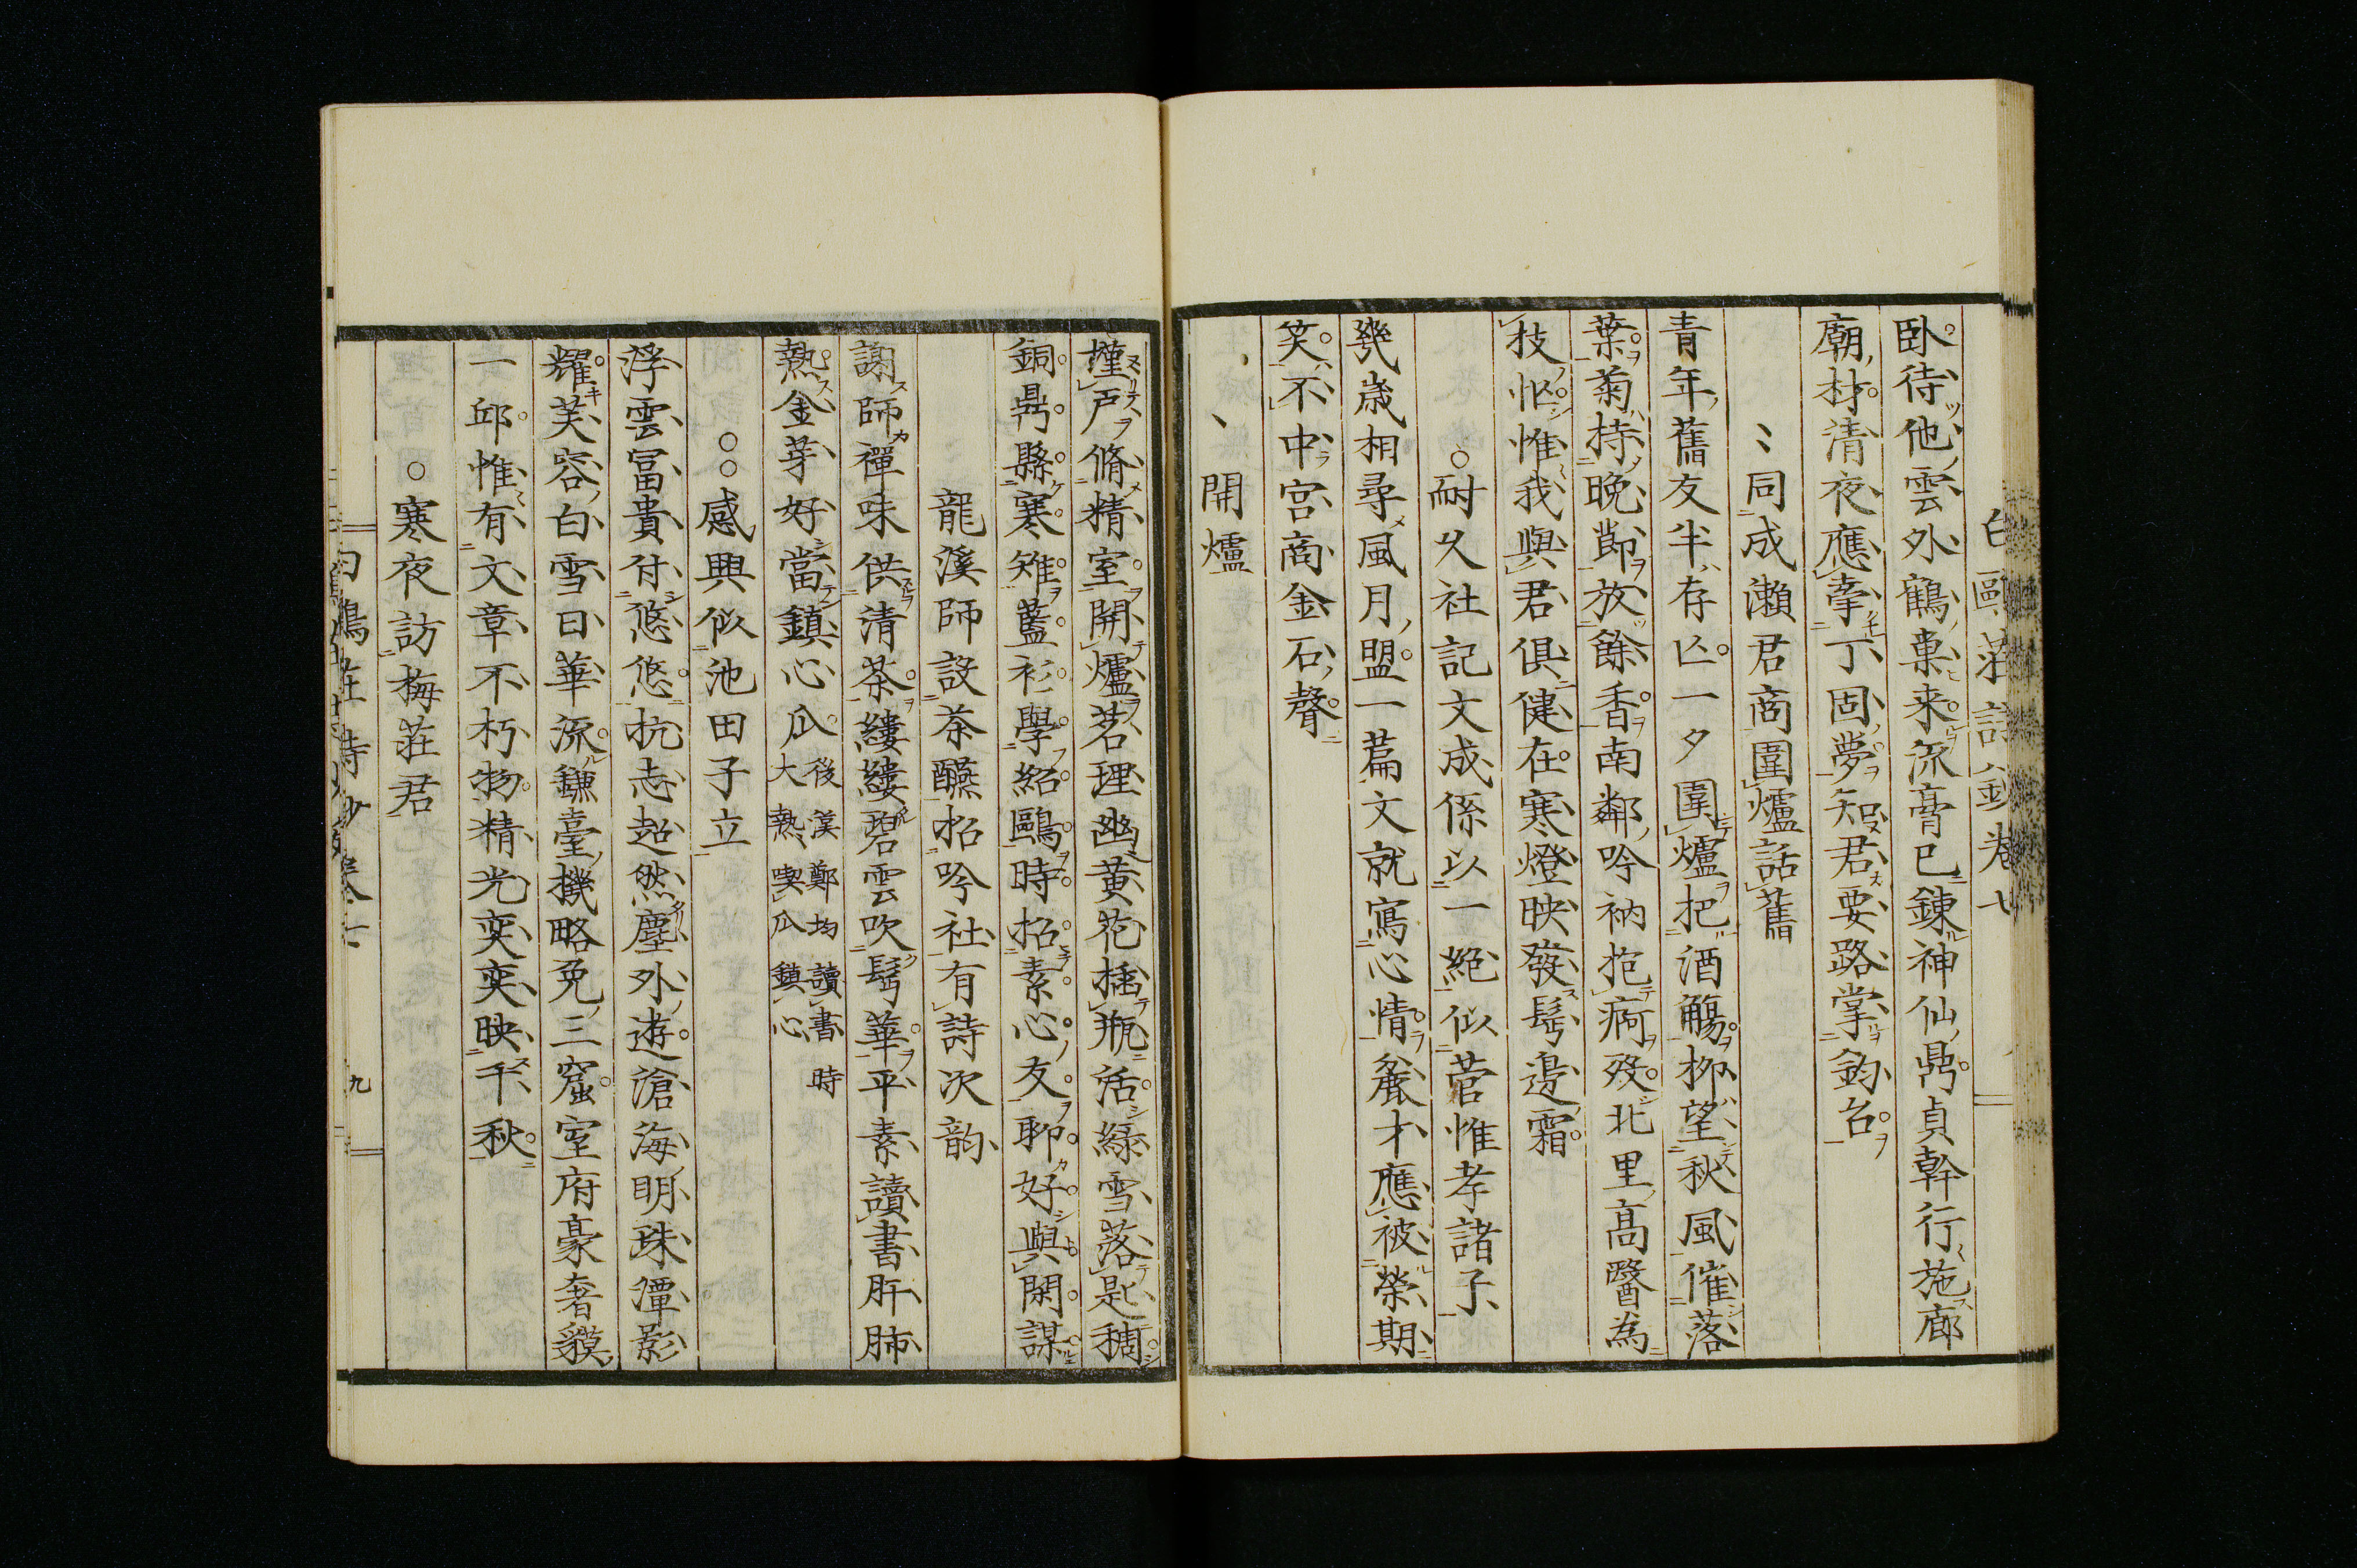 白鷗莊詩鈔卷七
臥待他雲外鶴棗来泝膏已錬神仙鼎貞幹行施廊
廟材清夜應牽丁固夢知君要路掌鈞台
同成瀨君商圍爐話舊
青年舊友半存亡一夕圍爐把酒觴栁望秋風催落
葉菊持晚節放餘香南鄰吟衲抱痾歿北里高醫為
技忙惟我與君俱健在寒燈映發髩邊霜
耐久社記文成係以一絶似菅惟孝諸子
幾歲相尋風月盟一篇文就寫心情麁才應被榮期
笑不中宮商金石聲
開爐
墐戶脩精室開爐茗理幽黃花插瓶活綠雪落匙稠
銅鼎縣寒雉藍衫學紹鷗時招素心友聊好與閑謀
龍溪師設茶醼招吟社有詩次韵
謝師禪味供清茶縷縷碧雲吹髩華平素讀書肝肺
熱金芽好當鎮心瓜 後漢鄭均讀書時大熱喫瓜鎮心
感興似池田子立
浮雲冨貴付悠悠抗志超然塵外遊滄海明珠潭影
耀芙容白雪日華流鎌臺機略免三窟室府豪奢貘
一邱惟有文章不朽物精光奕奕映千秋
寒夜訪梅莊君
九